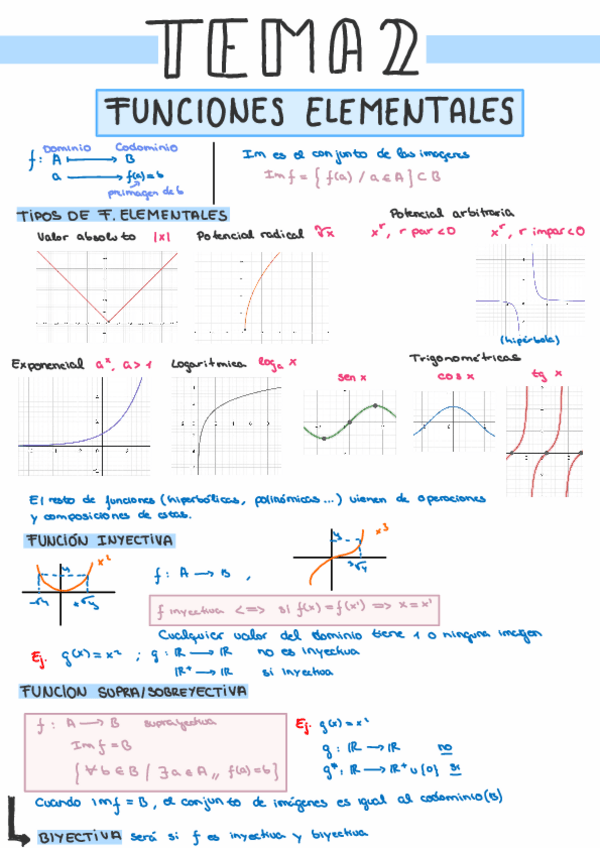 TEMA 2
FUNCIONES ELEMENTALES
Dominio Codominio
f: A ⟼ B
a ⟶ f(a)=b
primagen de b
Im es el conjunto de las imágenes
Im f = { f(a) / a ∈ A } ⊂ B
TIPOS DE F. ELEMENTALES
Potencial arbitraria
Valor absoluto |x| Potencial radical ʳ√x xʳ, r par <0 xʳ, r impar <0
(hipérbola)
Exponencial aˣ, a>1 Logarítmica logₐ x Trigonométricas
sen x cos x tg x
El resto de funciones (hiperbólicas, polinómicas...) vienen de operaciones
y composiciones de estas.
FUNCIÓN INYECTIVA
x² y f: A ⟶ B, y x³
-√y +√y ³√y
f inyectiva <=> si f(x) = f(x') => x = x'
Cualquier valor del dominio tiene 1 o ninguna imagen
Ej. g(x) = x² ; g: ℝ ⟶ ℝ no es inyectiva
ℝ⁺ ⟶ ℝ sí inyectiva
FUNCION SUPRA/SOBREYECTIVA
f: A ⟶ B suprayectiva
Im f = B
{ ∀ b ∈ B / ∃ a ∈ A ,, f(a) = b }
Ej. g(x) = x²
g: ℝ ⟶ ℝ no
g*: ℝ ⟶ ℝ⁺ ∪ {0} sí
Cuando Im f = B, el conjunto de imágenes es igual al codominio (B)
BIYECTIVA será si f es inyectiva y biyectiva